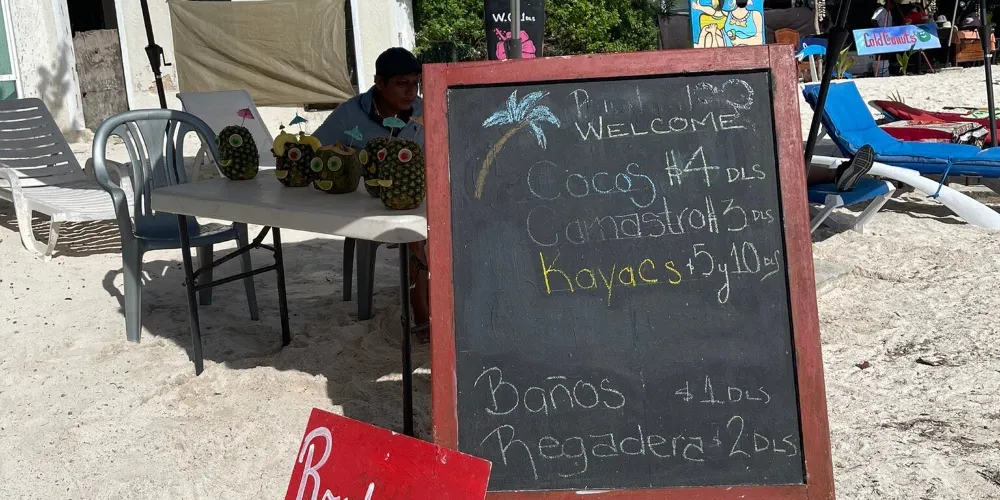 W.C
Cold Conuts
WELCOME
Cocos $4 DLS
Camastroll 3 DLS
Kayacs $5 y 10 DLS
Baños $1 DLS
Regadera $2 DLS